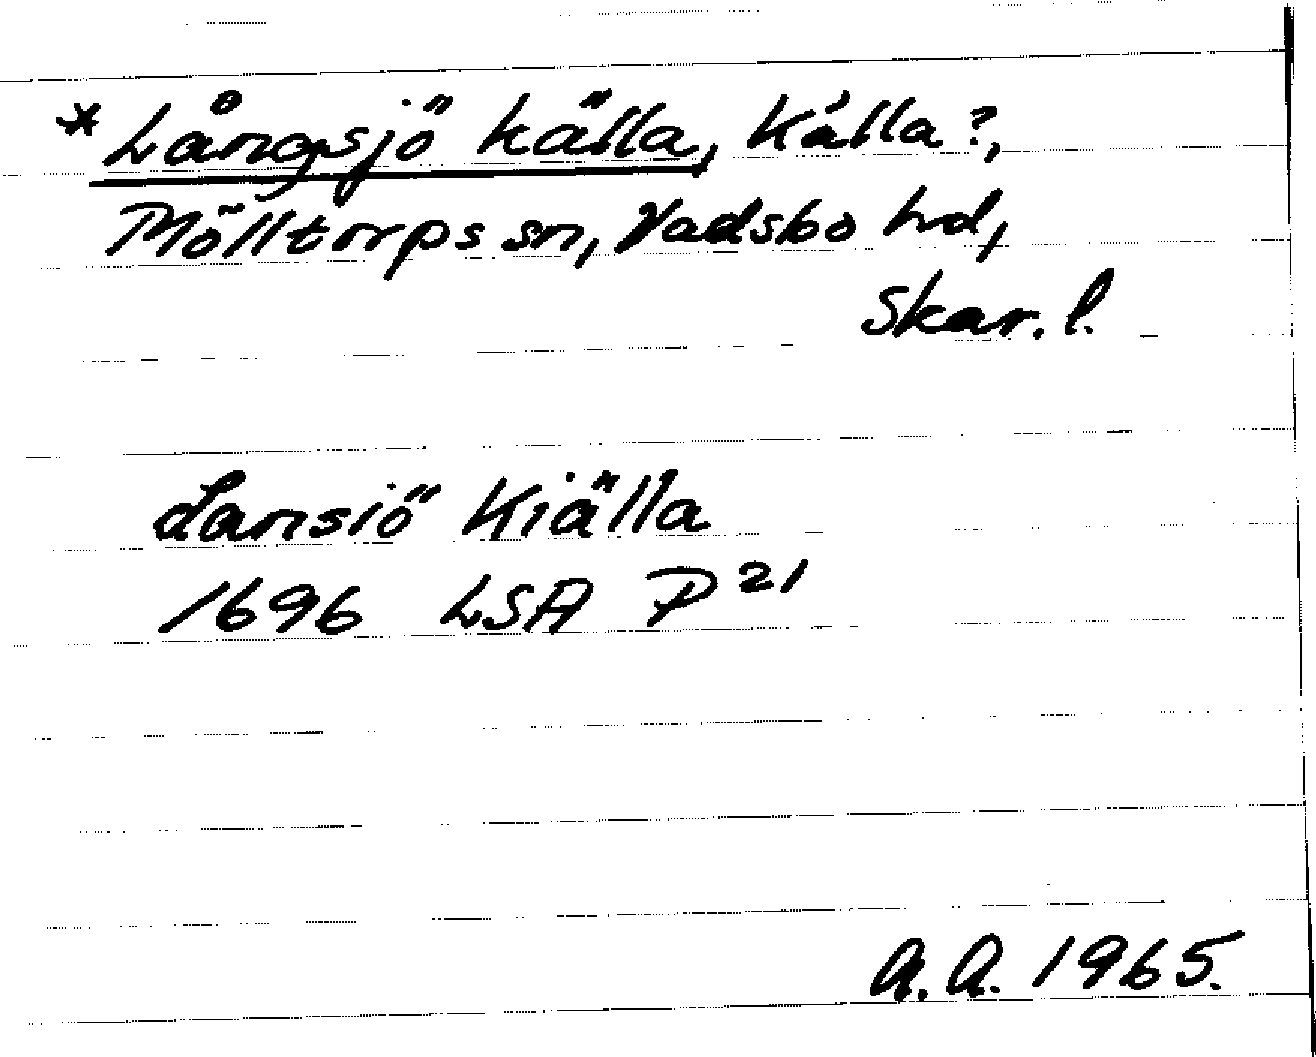 *Långsjö källa, Källa?,
Mölltorps sn, Vadsbo hd,
Skar. l.
Lansiö Kiälla
1696 LSA P 21
A.A. 1965.